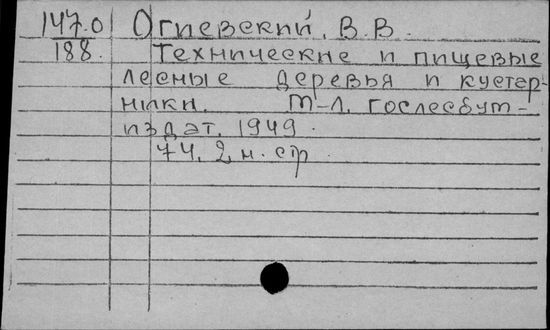 147.0 Огиевский, В.В.
188. Технические и пищевые
лесные деревья и кустар-
ники. М-Л. Гослесбум-
издат. 1949.
74, 2 н. стр.